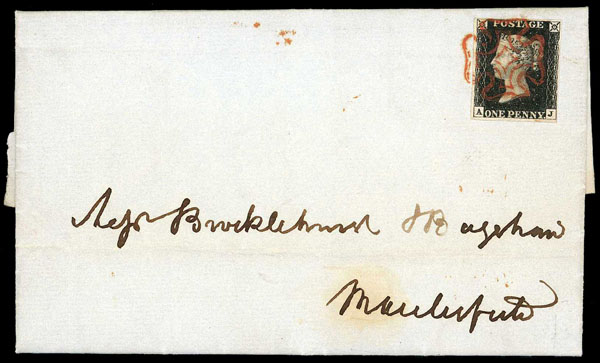 POSTAGE
A ONE PENNY J
Messrs Brocklehurst & Bagshaw
Macclesfield